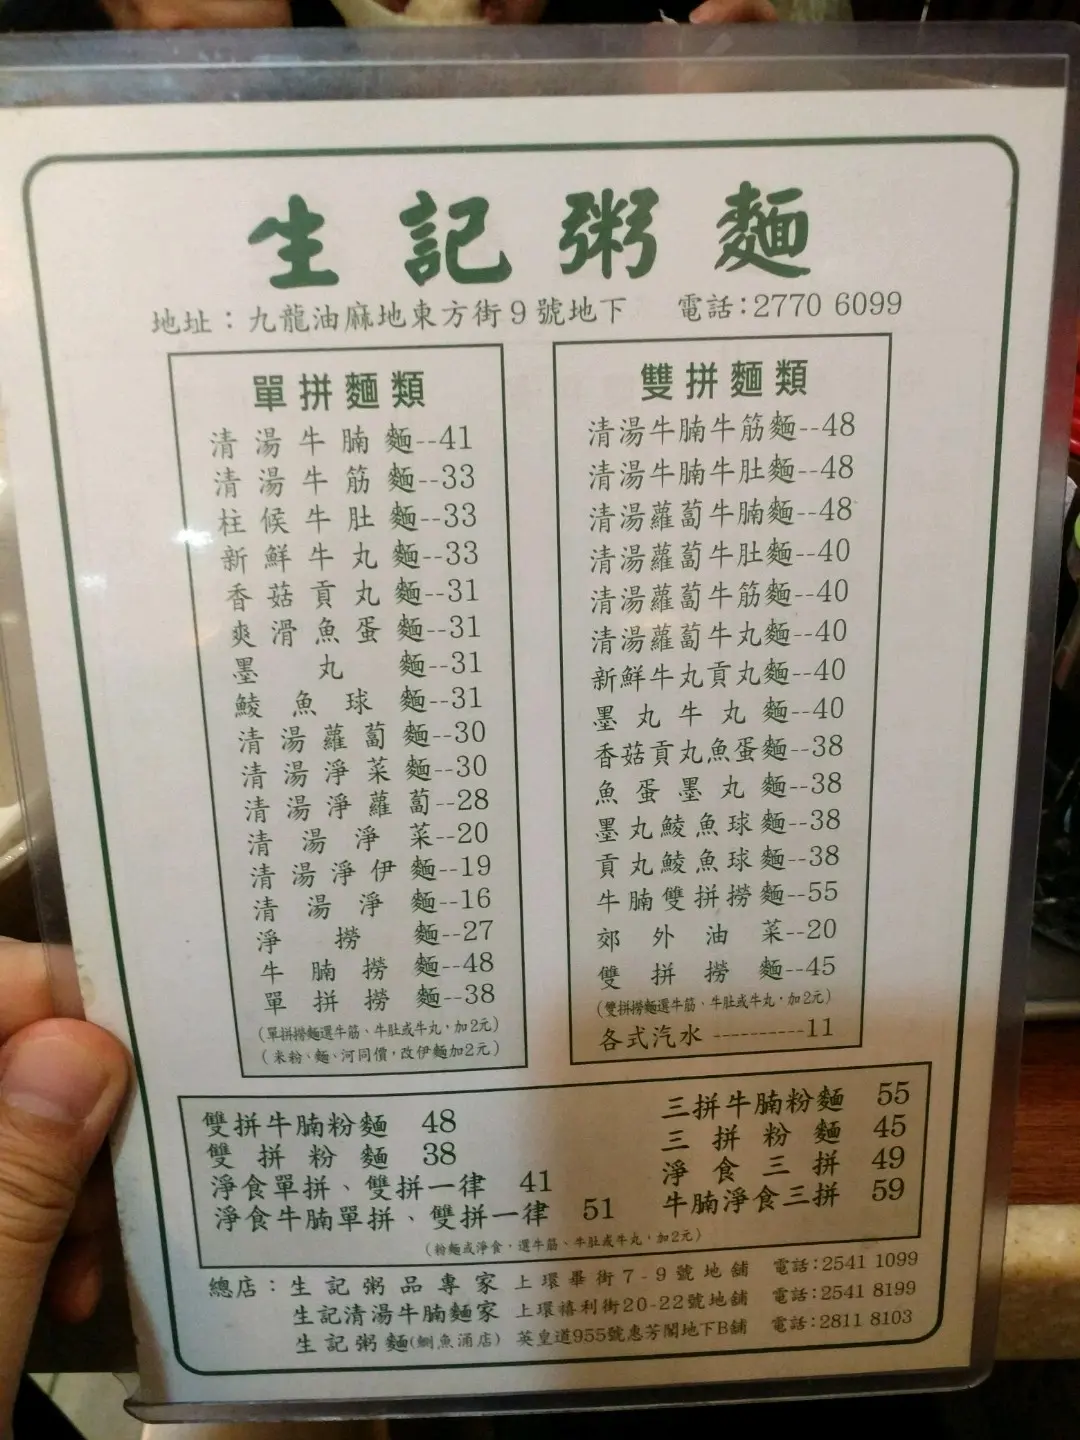 生記粥麵
地址：九龍油麻地東方街9號地下 電話：2770 6099
單拼麵類
清湯牛腩麵--41
清湯牛筋麵--33
柱候牛肚麵--33
新鮮牛丸麵--33
香菇貢丸麵--31
爽滑魚蛋麵--31
墨丸麵--31
鯪魚球麵--31
清湯蘿蔔麵--30
清湯淨菜麵--30
清湯淨蘿蔔--28
清湯淨菜--20
清湯淨伊麵--19
清湯淨麵--16
淨撈麵--27
牛腩撈麵--48
單拼撈麵--38
（單拼撈麵選牛筋、牛肚或牛丸，加2元）
（米粉、麵、河同價，改伊麵加2元）
雙拼麵類
清湯牛腩牛筋麵--48
清湯牛腩牛肚麵--48
清湯蘿蔔牛腩麵--48
清湯蘿蔔牛肚麵--40
清湯蘿蔔牛筋麵--40
清湯蘿蔔牛丸麵--40
新鮮牛丸貢丸麵--40
墨丸牛丸麵--40
香菇貢丸魚蛋麵--38
魚蛋墨丸麵--38
墨丸鯪魚球麵--38
貢丸鯪魚球麵--38
牛腩雙拼撈麵--55
郊外油菜--20
雙拼撈麵--45
（雙拼撈麵選牛筋、牛肚或牛丸，加2元）
各式汽水----------11
雙拼牛腩粉麵 48
雙拼粉麵 38
淨食單拼、雙拼一律 41
淨食牛腩單拼、雙拼一律 51
三拼牛腩粉麵 55
三拼粉麵 45
淨食三拼 49
牛腩淨食三拼 59
（粉麵或淨食，選牛筋、牛肚或牛丸，加2元）
總店：生記粥品專家 上環畢街7-9號地舖 電話：2541 1099
生記清湯牛腩麵家 上環禧利街20-22號地舖 電話：2541 8199
生記粥麵(鰂魚涌店) 英皇道955號惠芳閣地下B舖 電話：2811 8103